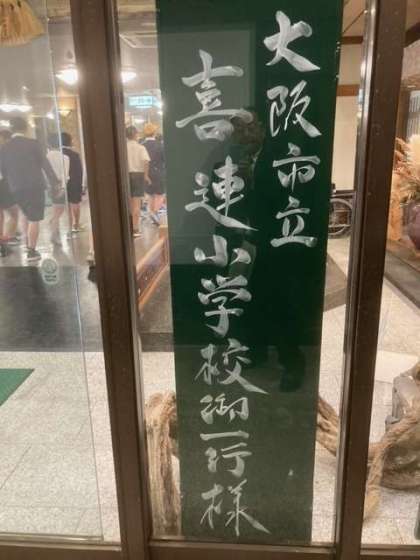 大阪市立
喜連小学校御一行様